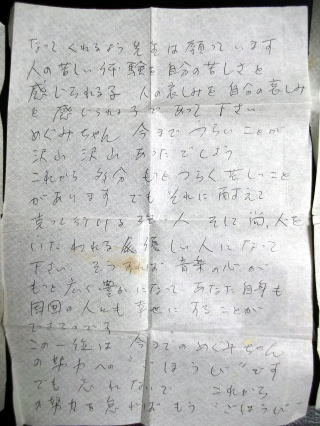 なってくれるよう先生は願っています
人の苦しい体験を自分の苦しさと
感じられる子 人の哀しみを自分の哀しみ
と感じられる子であって下さい
めぐみちゃん 今まで つらいことが
沢山 沢山 あったでしょう
これから 多分 もっとつらく苦しいこと
があります でもそれに耐えて
行ける 人 そして尚、人を
いたわれる 優しい人になって
下さい そうすれば 音楽の心が
もっと広く豊かになって あなた自身も
周囲の人にも 幸せに することが
できるでしょう
この一位は 今までのめぐみちゃん
の努力への "ごほうび" です
でも 忘れないで これから
の努力を怠れば もう "ごほうび"